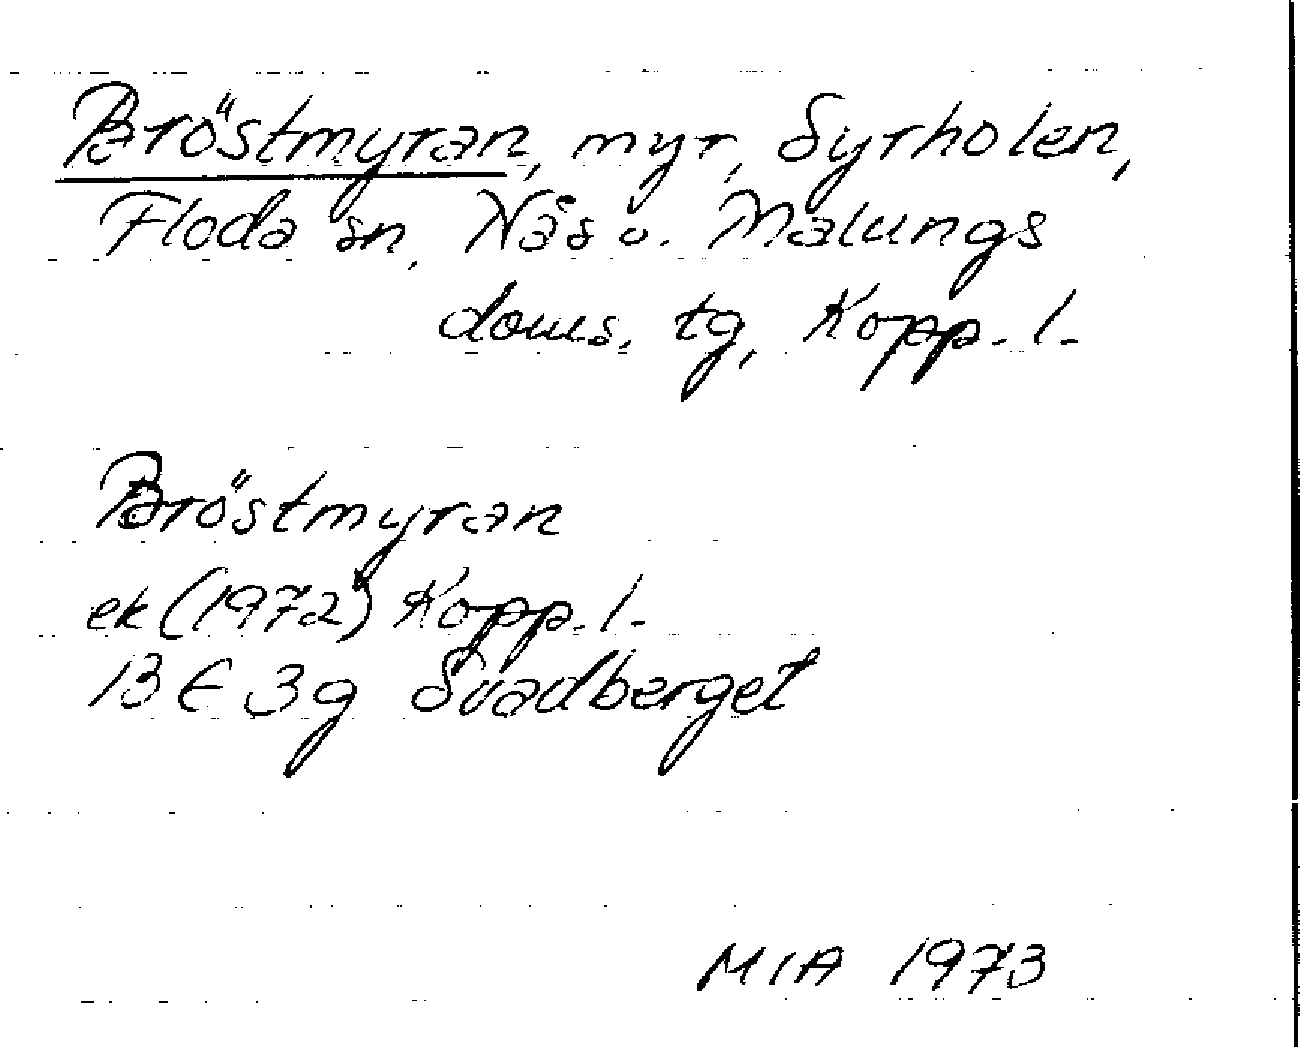 Bröstmyran, myr, Syrholen,
Floda sn, Nås o. Malungs
doms. tg, Kopp. l.
Bröstmyran
ek (1972) Kopp. l.
13 E 3g Svadberget
MIA 1973